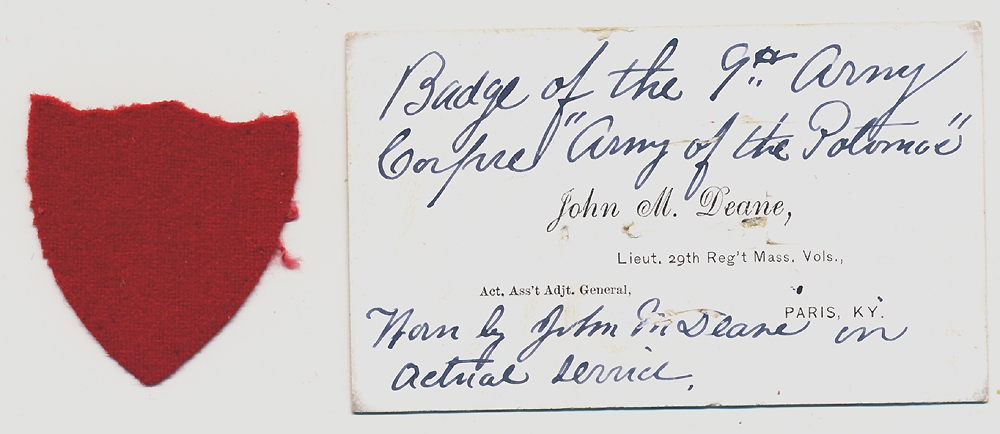 Badge of the 9th Army
Corps "Army of the Potomac"
John M. Deane,
Lieut. 29th Reg't Mass. Vols.,
Act. Ass't Adjt. General,
PARIS, KY.
Worn by John M Deane in
actual service.